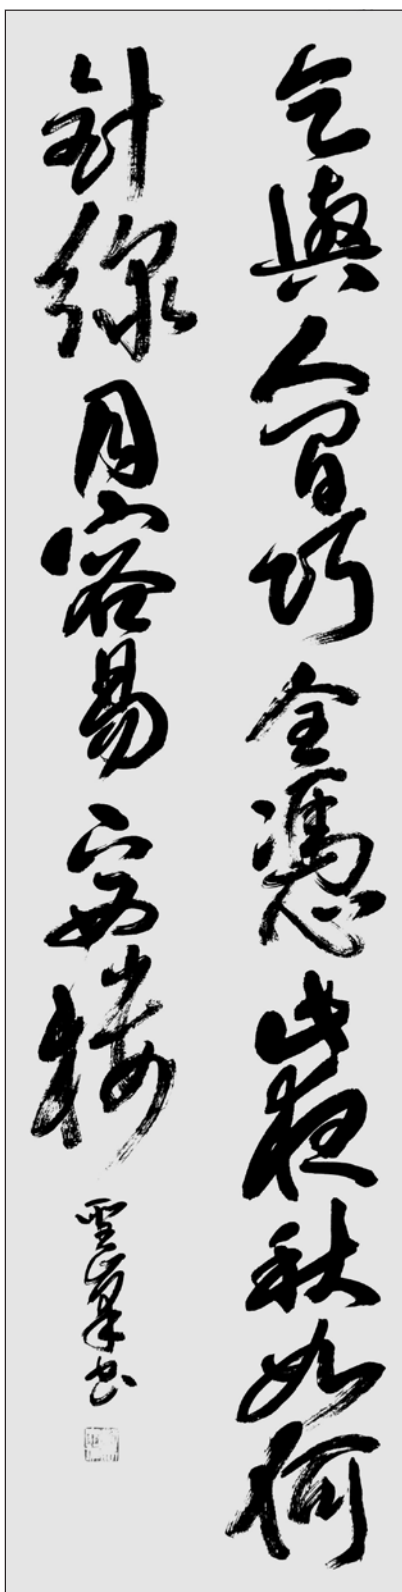 乞與人間巧全憑此夜秋如何
針線月容易下西樓
雲峯書